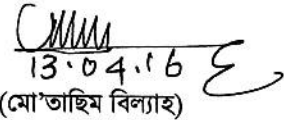 13.04.16
(মো'তাছিম বিল্যাহ)